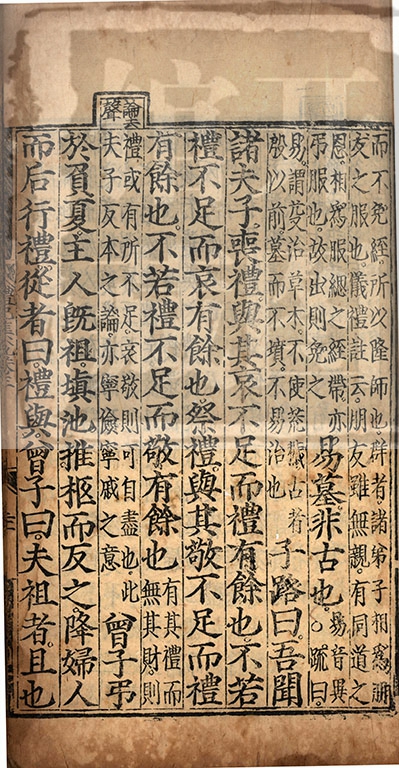 而不免絰所以隆師也群者諸弟子相爲朋
友之服也儀禮註云朋友雖無親有同道之
恩相爲服緦之絰帶亦
弔服也故出則免之
易墓非古也
易音異
○疏曰
易謂芟治草木不使荒穢古者
殷以前墓而不墳不易治也
子路曰吾聞
諸夫子喪禮與其哀不足而禮有餘也不若
禮不足而哀有餘也祭禮與其敬不足而禮
有餘也不若禮不足而敬有餘也
有其禮而
無其財則
論去
聲
禮或有所不足哀敬則可自盡也此
夫子反本之論亦寧儉寧戚之意
曾子弔
於負夏主人旣祖塡池推柩而反之降婦人
而后行禮從者曰禮與曾子曰夫祖者且也